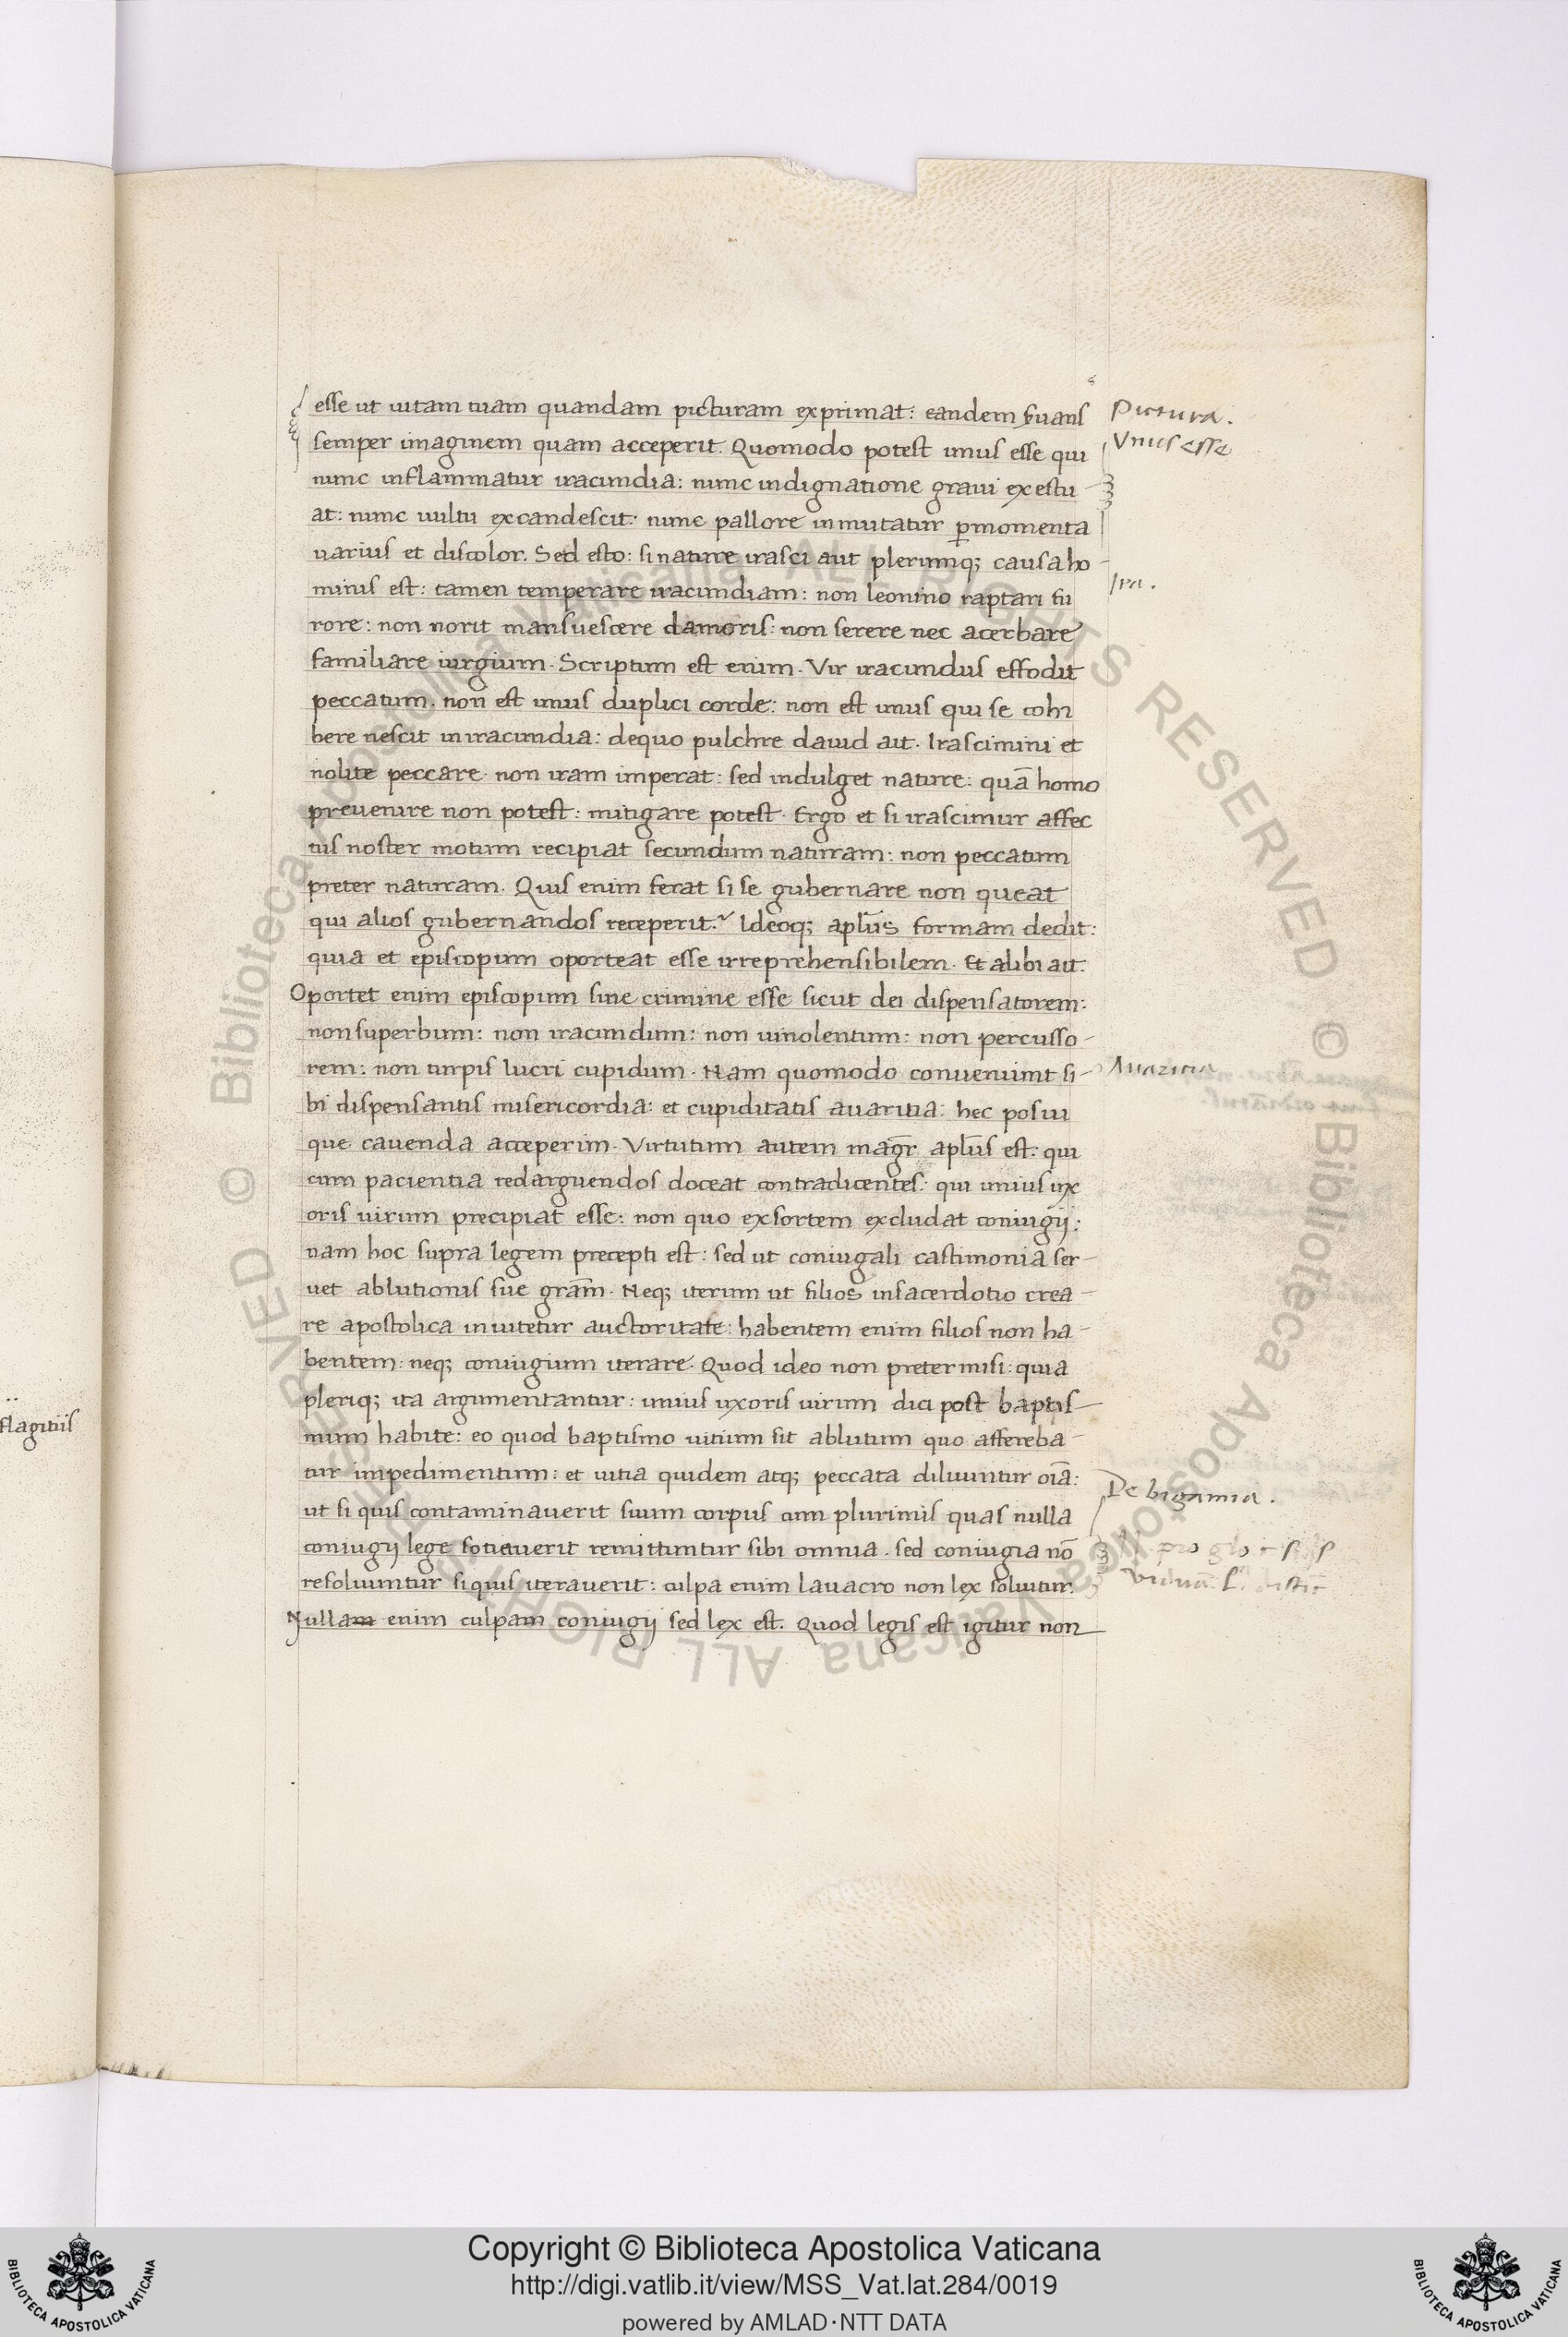 esse ut uitam tuam quandam picturam exprimat: eandem s̄uans
semper imaginem quam acceperit. Quomodo potest unus esse qui
nunc inflammatur iracundia: nunc indignatione graui exestu
at: nunc uultu excandescit: nunc pallore inmutatur ꝑ momenta
uarius et discolor. Sed esto: si nature irasci aut plerunq; causa ho-
minis est: tamen temperare iracundiam: non leonino raptari fu
rore: non norit mansuescere clamoris: non serere nec acerbare
familiare iurgium. Scriptum est enim. Vir iracundus effodit
peccatum. non est unus duplici corde: non est unus qui se cohi
bere nescit in iracundia: de quo pulchre dauid ait. Irascimini et
nolite peccare. non iram imperat: sed indulget nature: quā homo
preuenire non potest: mitigare potest. Ergo et si irascimur affec
tus noster motum recipiat secundum naturam: non peccatum
preter naturam. Quis enim ferat si se gubernare non queat
qui alios gubernandos receperit? Ideoq; apl̄us formam dedit:
quia et episcopum oporteat esse irreprehensibilem. Et alibi ait.
Oportet enim episcopum sine crimine esse sicut dei dispensatorem:
non superbum: non iracundum: non uinolentum: non percusso-
rem: non turpis lucri cupidum. Nam quomodo conueniunt si-
bi dispensantis misericordia: et cupiditatis auaritia: hec posui
que cauenda acceperim. Virtutum autem magr̄ apl̄us est: qui
cum pacientia redarguendos doceat contradicentes: qui unius ux
oris uirum precipiat esse: non quo exsortem excludat coniugij:
nam hoc supra legem precepti est: sed ut coniugali castimonia ser-
uet ablutionis sue grām. Neq; iterum ut filios in sacerdotio crea-
re apostolica inuitetur auctoritate: habentem enim filios non ha-
bentem: neq; coniugium iterare. Quod ideo non pretermisi: quia
pleriq; ita argumentantur: unius uxoris uirum dici post baptis-
mum habite: eo quod baptismo uitium sit ablutum quo affereba-
tur impedimentum: et uitia quidem atq; peccata diluuntur oīa:
ut si quis contaminauerit suum corpus cum plurimis quas nulla
coniugij lege sotiauerit remittuntur sibi omnia. sed coniugia nō
resoluuntur si quis iterauerit: culpa enim lauacro non lex soluitur.
Nullam enim culpam coniugij sed lex est. Quod legis est igitur non
Pictura.
Vnus esse
Ira.
Auaritia
De bigamia.
flagitiis
Copyright © Biblioteca Apostolica Vaticana
http://digi.vatlib.it/view/MSS_Vat.lat.284/0019
powered by AMLAD·NTT DATA
© Biblioteca Apostolica Vaticana ALL RIGHTS RESERVED © Biblioteca Apostolica Vaticana ALL RIGHTS RESERVED
BIBLIOTECA APOSTOLICA VATICANA
BIBLIOTECA APOSTOLICA VATICANA